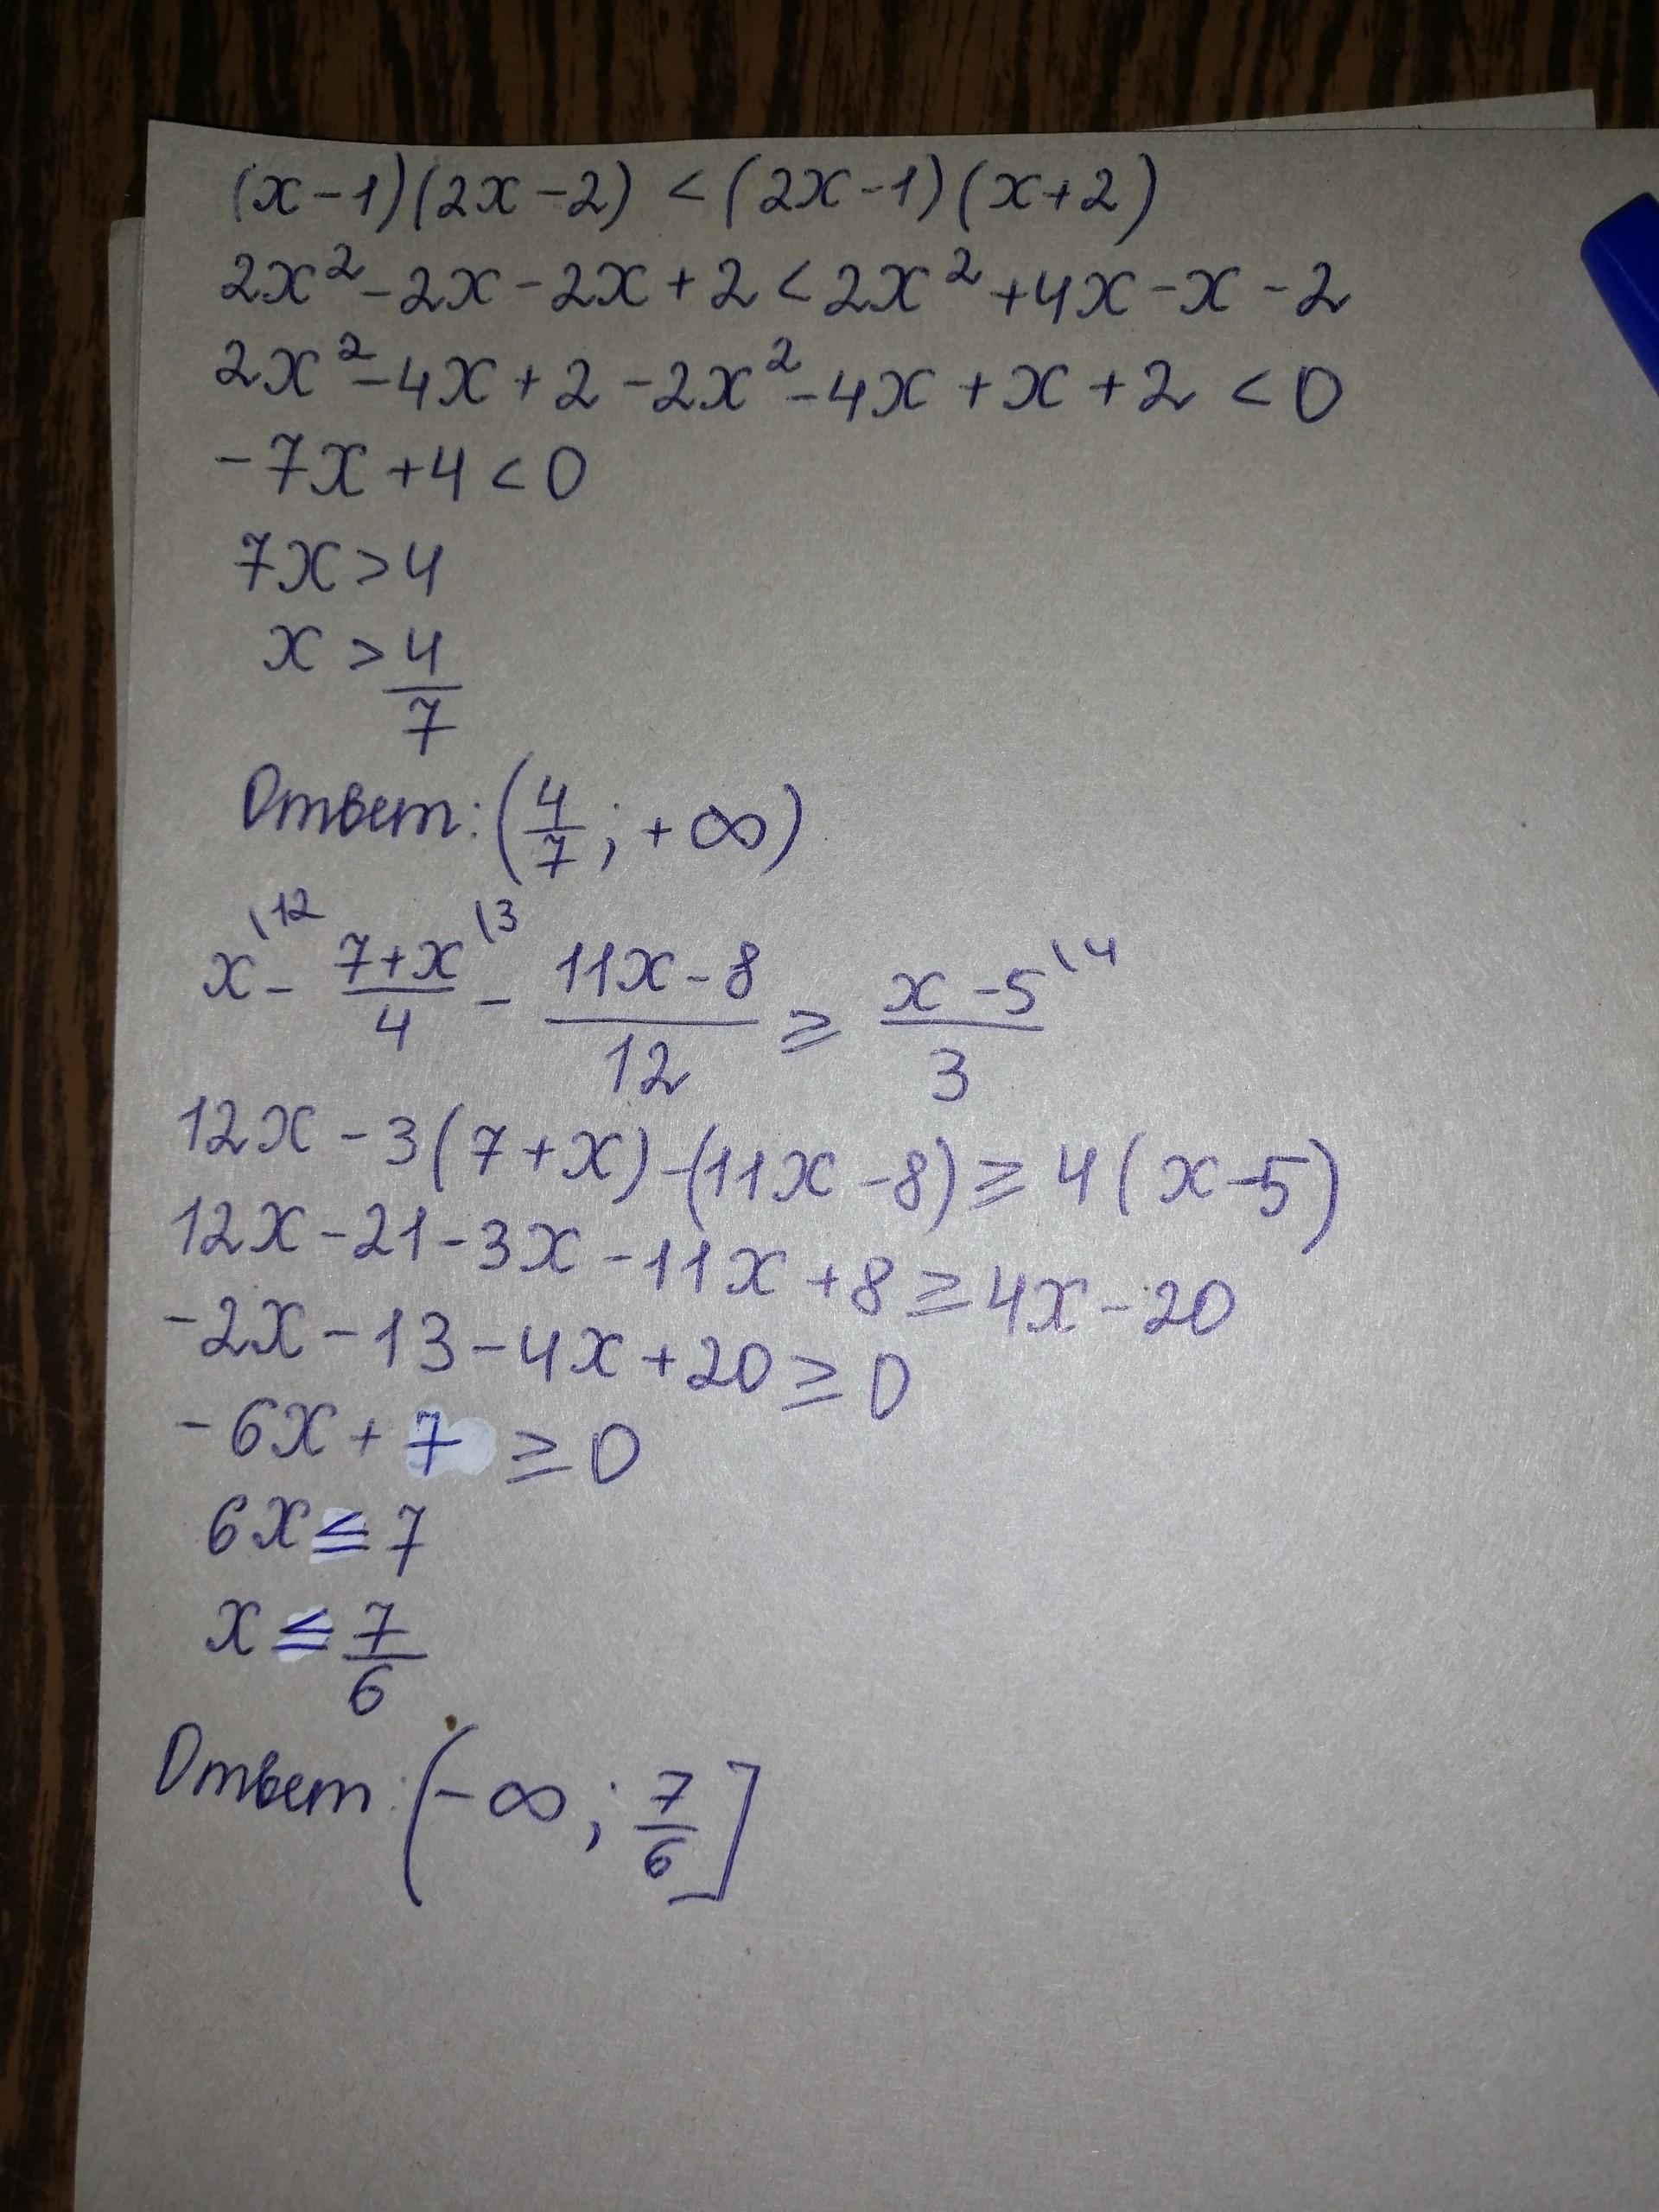 (x-1)(2x-2) < (2x-1)(x+2)
2x²-2x-2x+2<2x²+4x-x-2
2x²-4x+2-2x²-4x+x+2<0
-7x+4<0
7x>4
x>4/7
Ответ: (4/7; +∞)
x\12 - 7+x/4 \3 - 11x-8/12 ≥ x-5/3 \4
12x-3(7+x)-(11x-8)≥4(x-5)
12x-21-3x-11x+8≥4x-20
-2x-13-4x+20≥0
-6x+7≥0
6x≤7
x≤7/6
Ответ: (-∞; 7/6]